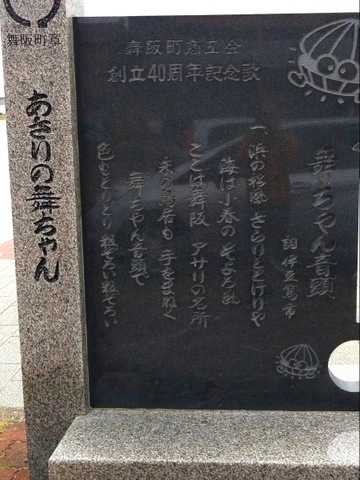 舞阪町章
あさりの舞ちゃん
舞阪町商工会
創立40周年記念歌
舞ちゃん音頭
詞 伊豆篤市
一、浜の松風 さらりととけりゃ
海は小春の そよろ凪
ここは舞阪 アサリの名所
朱の鳥居も 手をまねく
舞ちゃん音頭で
色もとりどり 粒ぞろい粒ぞろい